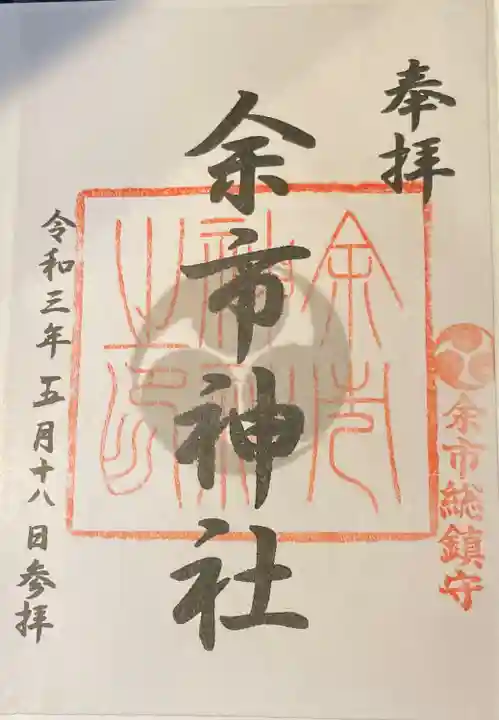 奉拝
余市総鎮守
余市神社
余市神社之印
令和三年五月十八日参拝